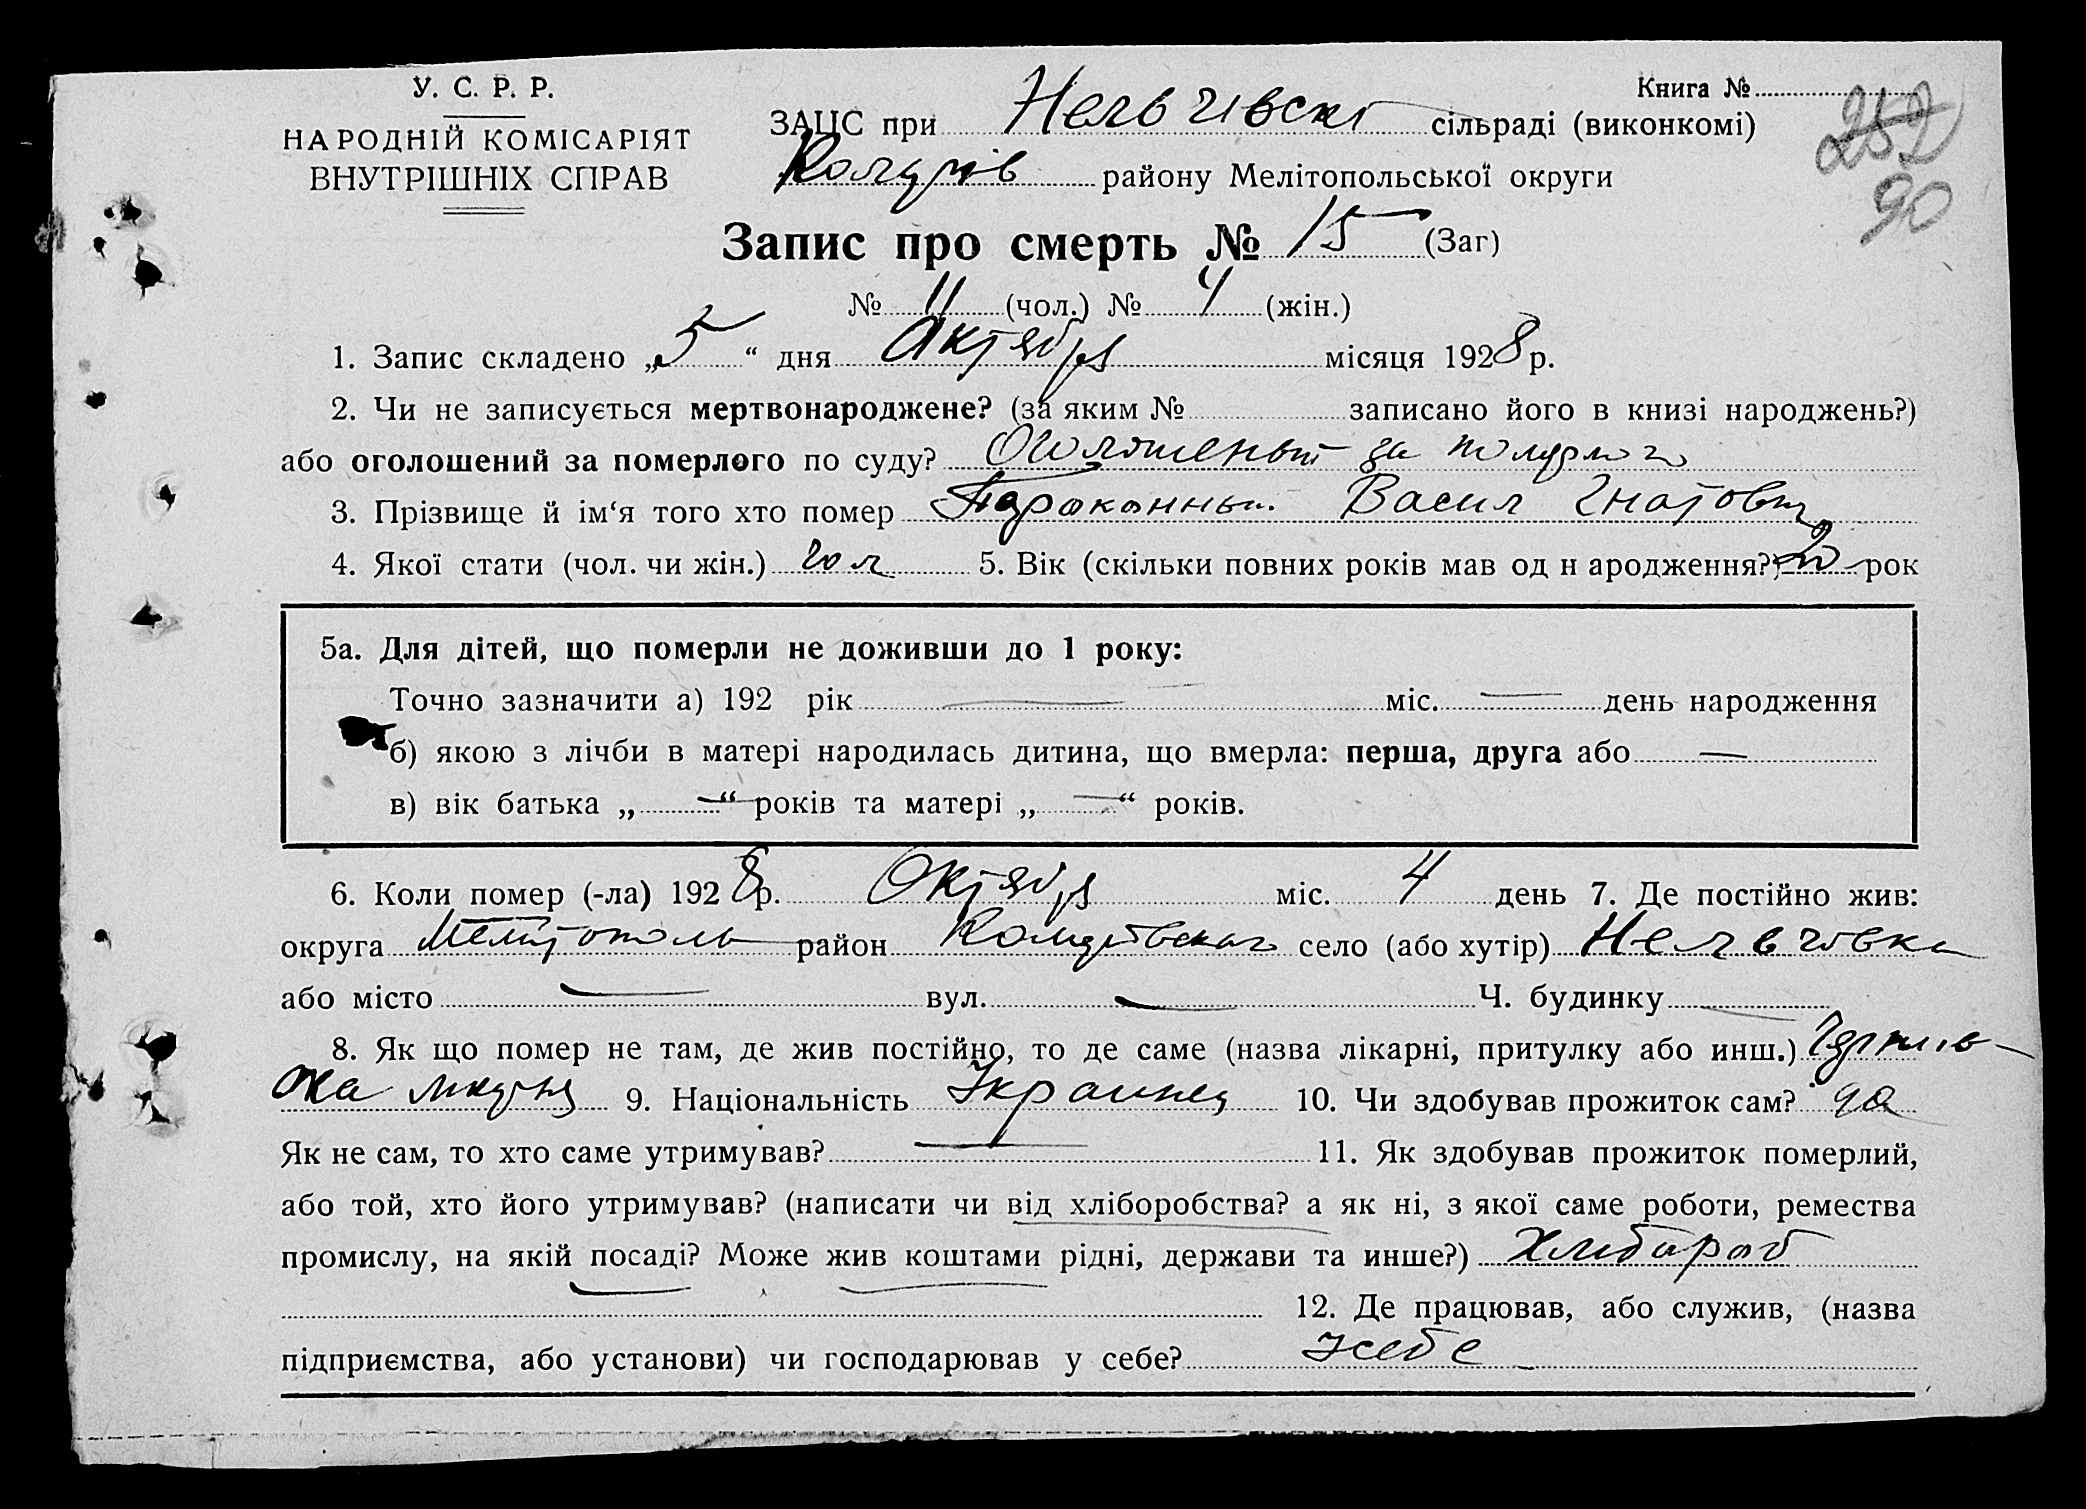 У. С. Р. Р.
НАРОДНІЙ КОМІСАРІЯТ
ВНУТРІШНІХ СПРАВ
Книга №
252
90
ЗАЦС при Нельгівскі сільраді (виконкомі)
району Мелітопольської округи
Запис про смерть № 15 (Заг)
№ 11 (чол.) № 4 (жін.)
1. Запис складено „5“ дня Октября місяця 1928 р.
2. Чи не записується мертвонароджене? (за яким № записано його в книзі народжень?)
або оголошений за померлого по суду? за
3. Прізвище й ім‘я того хто помер Тараканный Васил Гнатович
4. Якої стати (чол. чи жін.) чол 5. Вік (скільки повних років мав од н ародження?) рок
5а. Для дітей, що померли не доживши до 1 року:
Точно зазначити а) 192 рік — міс. — день народження
б) якою з лічби в матері народилась дитина, що вмерла: перша, друга або —
в) вік батька „—“ років та матері „—“ років.
6. Коли помер (-ла) 1928 р. Октября міс. 4 день 7. Де постійно жив:
округа Мелітополь район село (або хутір) Нельгівка
або місто — вул. — Ч. будинку —
8. Як що помер не там, де жив постійно, то де саме (назва лікарні, притулку або инш.)
9. Національність Украинец 10. Чи здобував прожиток сам? да
Як не сам, то хто саме утримував? — 11. Як здобував прожиток померлий,
або той, хто його утримував? (написати чи від хліборобства? а як ні, з якої саме роботи, ремества
промислу, на якій посаді? Може жив коштами рідні, держави та инше?) Хлибороб
12. Де працював, або служив, (назва
підприємства, або установи) чи господарював у себе? У себе